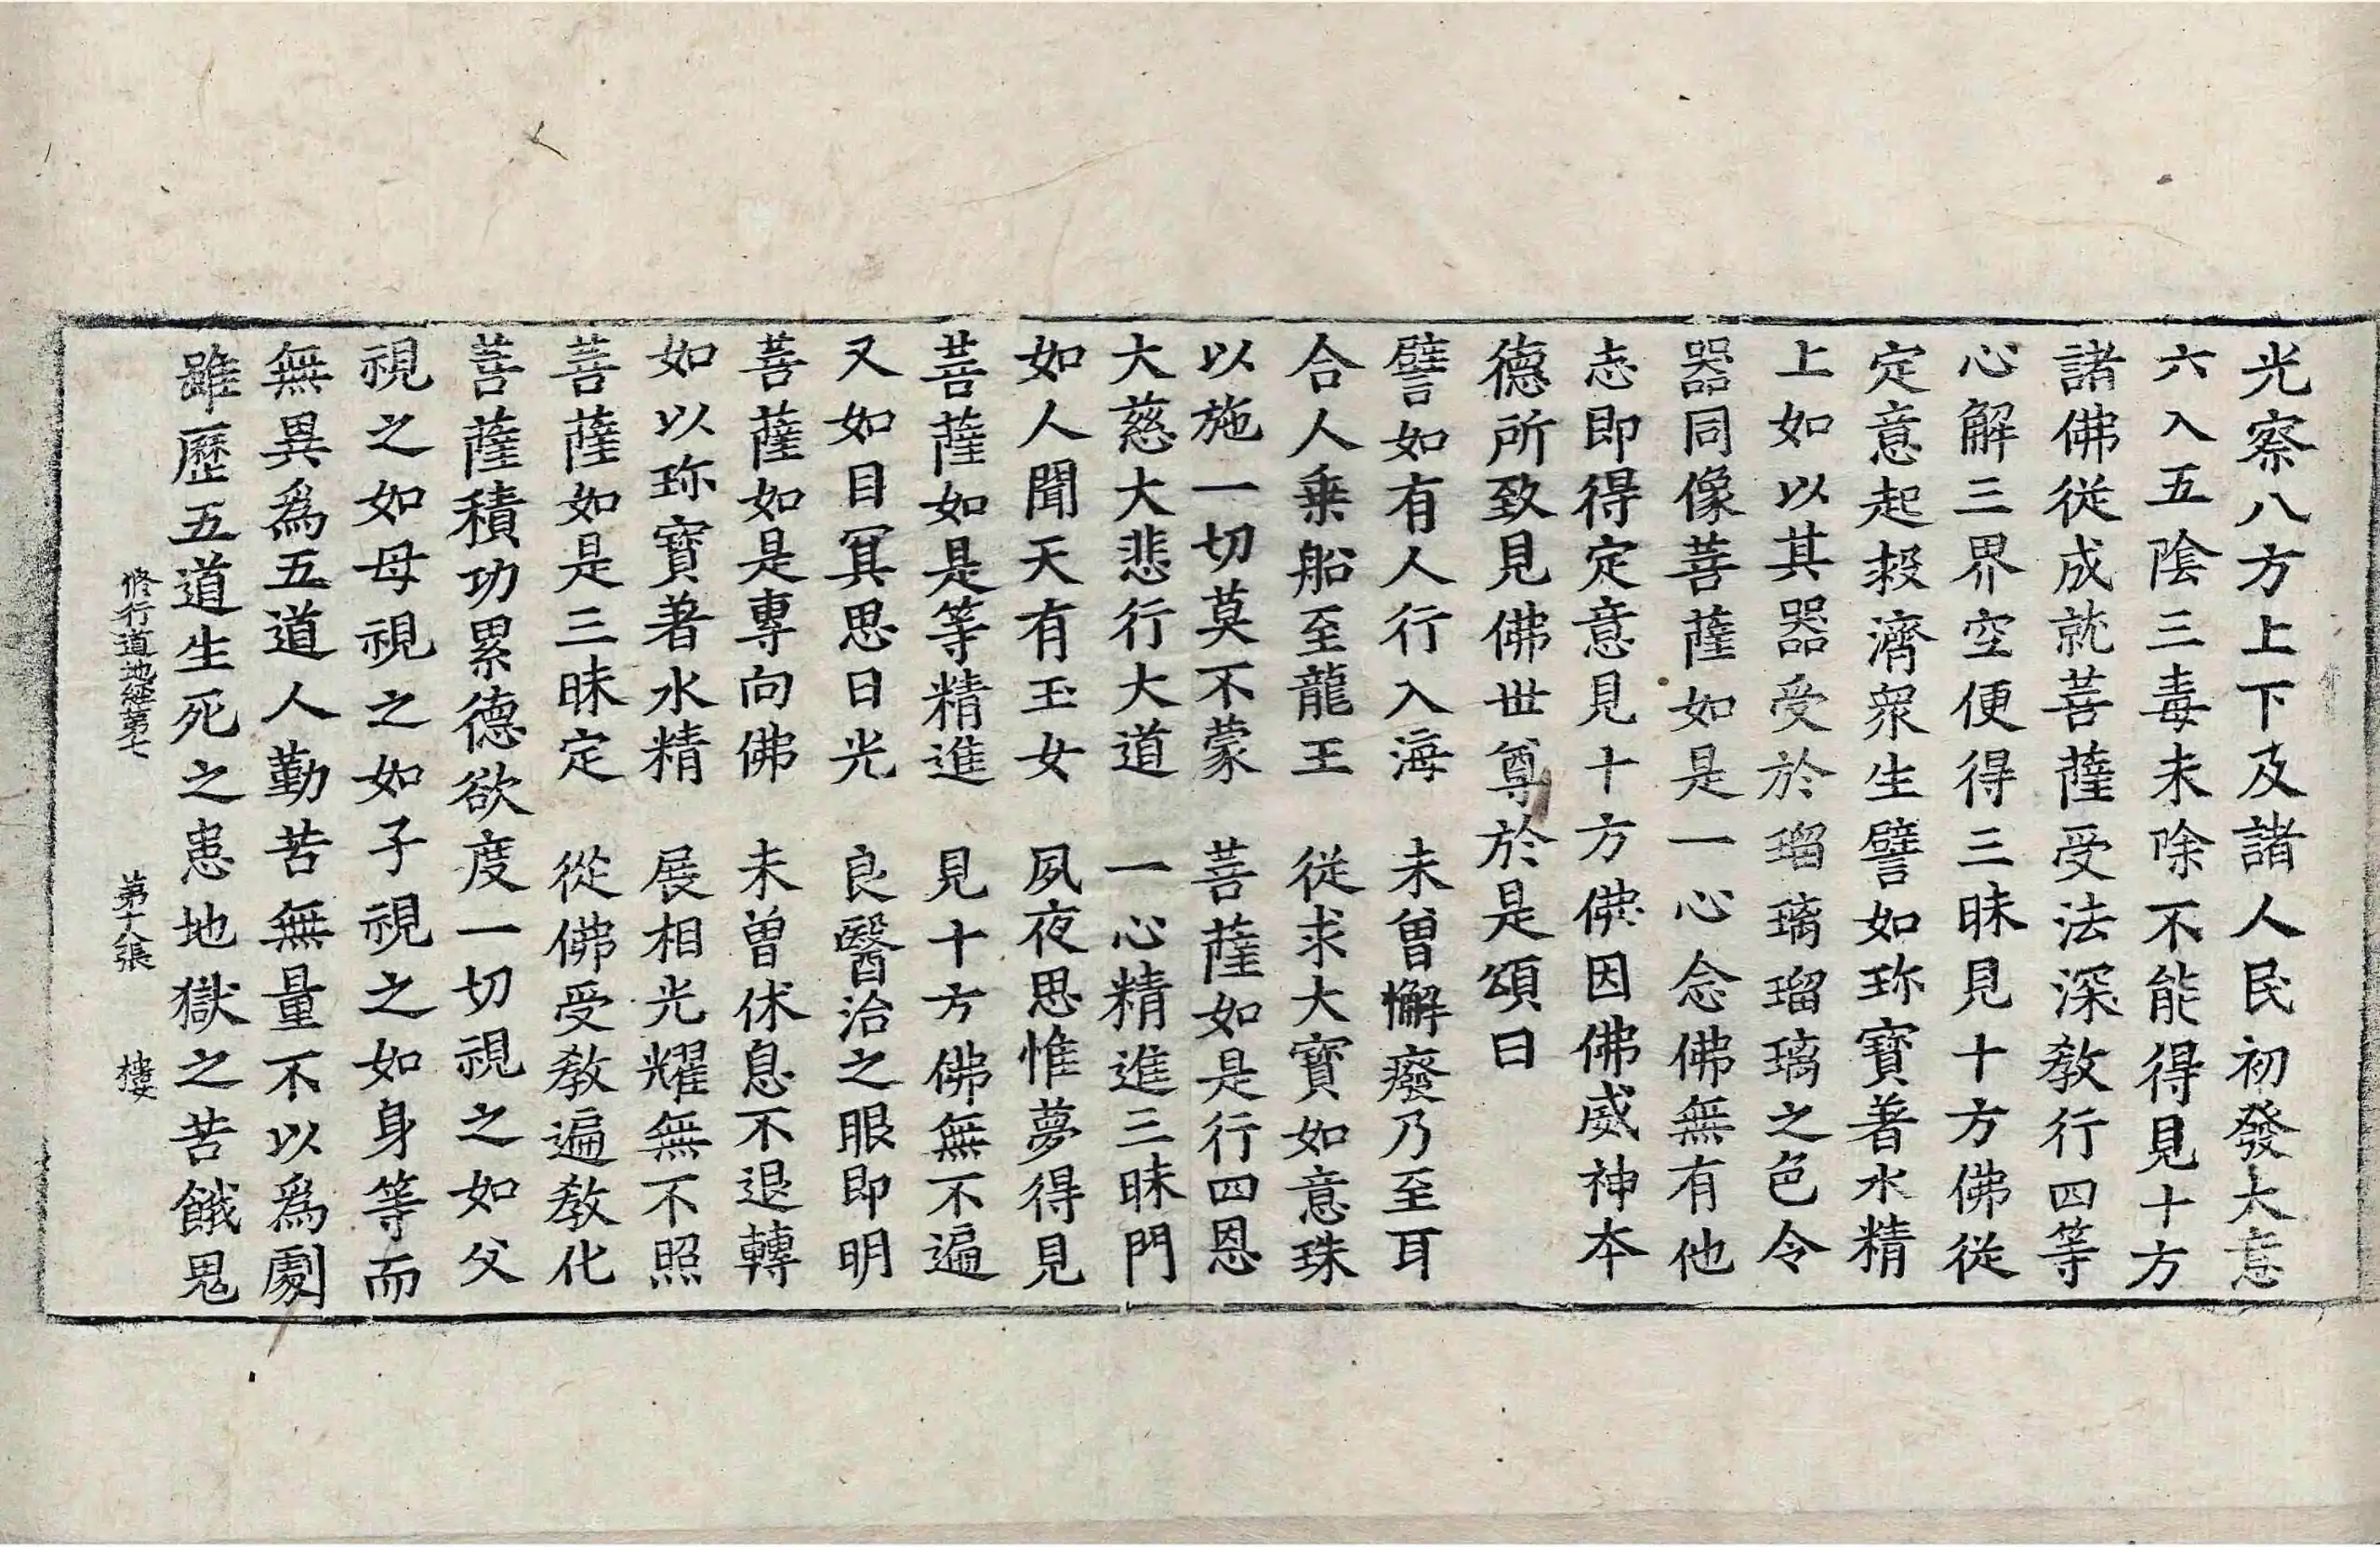 光察八方上下及諸人民初發大意
六入五陰三毒未除不能得見十方
諸佛従成就菩薩受法深教行四等
心解三界空便得三昧見十方佛従
定意起救濟衆生譬如珎寶著水精
上如以其器受於瑠璃瑠璃之色令
器同像菩薩如是一心念佛無有他
志即得定意見十方佛因佛威神本
德所致見佛世尊於是頌曰
譬如有人行入海　未曽懈癈乃至耳
合人乗船至龍王　從求大寶如意珠
以施一切莫不蒙　菩薩如是行四恩
大慈大悲行大道　一心精進三昧門
如人聞天有玉女　夙夜思惟夢得見
菩薩如是等精進　見十方佛無不遍
又如目冥思日光　良醫治之眼即明
菩薩如是專向佛　未曽休息不退轉
如以珎寶著水精　展相光耀無不照
菩薩如是三昧定　從佛受教遍教化
菩薩積功累德欲度一切視之如父
視之如母視之如子視之如身等而
無異爲五道人勤苦無量不以爲劇
雖歷五道生死之患地獄之苦餓鬼
修行道地經第七　第十八張　樓